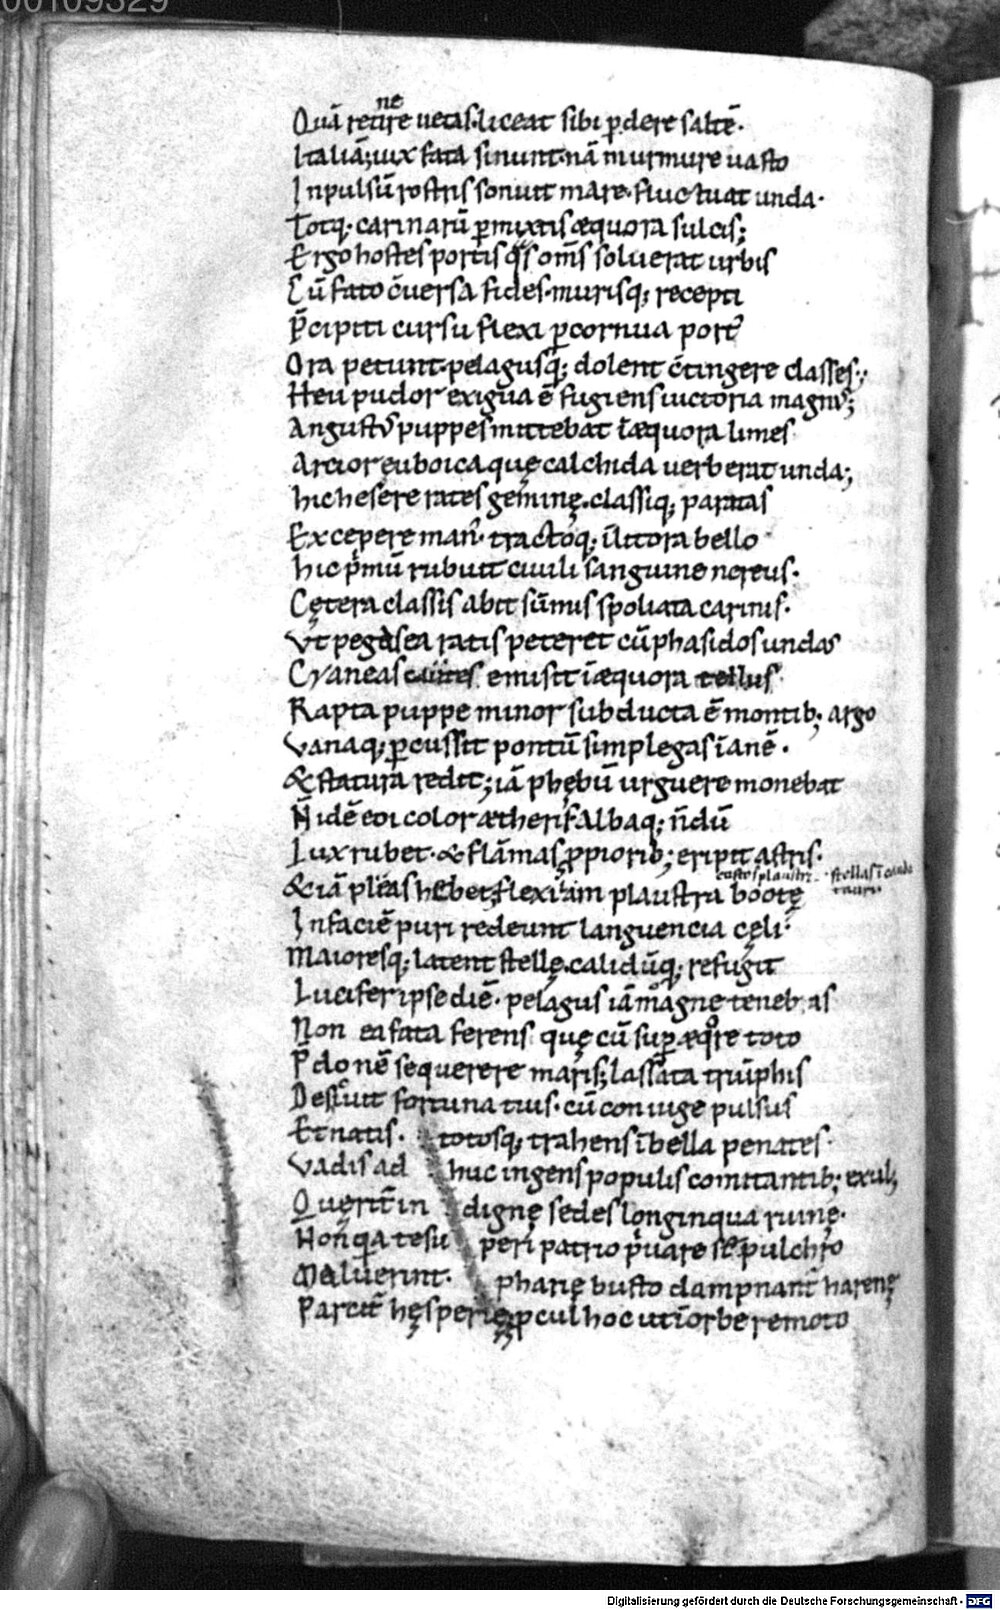 00109329
Quā retire uetas·liceat sibi ꝑdere saltē·
ne
Italiā; uix fata sinunt·nā murmure uasto
Inpulsū rostris sonuit mare·fluctuat unda·
Totq;·carinarū ꝑmixtis æquora sulcis;
Ergo hostes portis qs̄ om̄s soluerat urbis
Cū fato c̄uersa fides·murisq; recepti
P̄cipiti cursu flexi ꝑ cornua port᷒
Ora petunt·pelagusq; dolent c̄tingere classes·;
Heu pudor exigua ē fugiens uictoria magn᷒;
Angust᷒ puppes mittebat ī æquora limes
Arcior euboica quę calchida uerberat unda;
hic hesere rates geminę·classiq; paratas
Excepere man᷒·tractoq; ī littora bello·
hic p̄mū rubuit ciuili sanguine nereus·
Cętera classis abit sūmis spoliata carinis·
Vt pegasea ratis peteret cū phasidos undas
Cyaneas emisit ī æquora tellus·
Rapta puppe minor subducta ē montib; argo
Vanaq; ꝑcussit pontū simplegas īanē·
& statura redit; iā phębū urguere monebat
N̄ idē eoi color ætheris albaq; n̄dū
Lux rubet·& flāmas ꝓpiorib; eripit astris·
custos plaustri·stellas ī cauda
tauri
& iā plias hebet; flexi iam plaustra bootę
In faciē puri redeunt languencia cęli·
Maioresq; latent stellę·calidūq; refugit
Lucifer ipse diē·pelagus iā magne tenebas
Non ea fata ferens quę cū suꝑ æqre toto
P̄do nē sequerere maris; lassata triūphis
Destiuit fortuna tuis·cū coniuge pulsus
Et natis· totosq; trahens ī bella penates·
Vadis ad huc ingens populis comitantib; exul;
Querit᷒ in dignę sedes longinqua ruinę·
Hon q̄a te su peri patrio p̄uare sepulchro
Maluerint· pharię busto dampnant᷒ harenę
Parcit᷒ hęsperię ꝓcul hoc ut ī orbe remoto
Digitalisierung gefördert durch die Deutsche Forschungsgemeinschaft - DFG